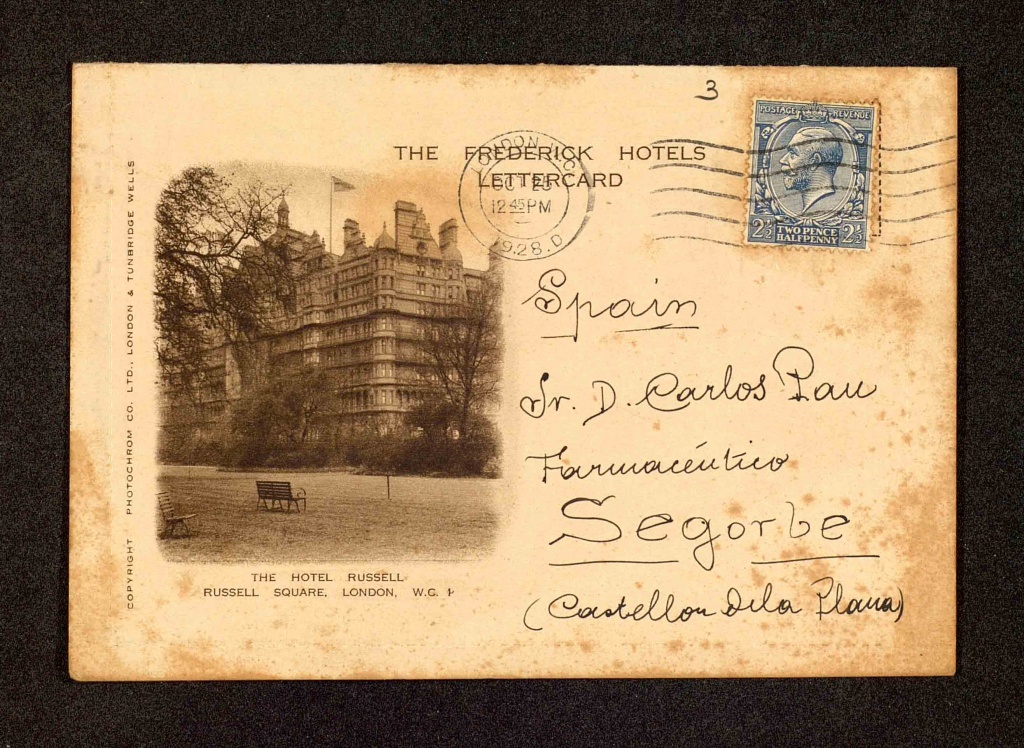 3
THE FREDERICK HOTELS
LETTERCARD
LONDON
OCT 25
12 45 PM
1928. D
POSTAGE REVENUE
2½ TWO PENCE 2½
HALFPENNY
Spain
Sr. D. Carlos Pau
Farmacéutico
Segorbe
(Castellon dela Plana)
THE HOTEL RUSSELL
RUSSELL SQUARE, LONDON, W.C. 1
COPYRIGHT PHOTOCHROM CO. LTD., LONDON & TUNBRIDGE WELLS